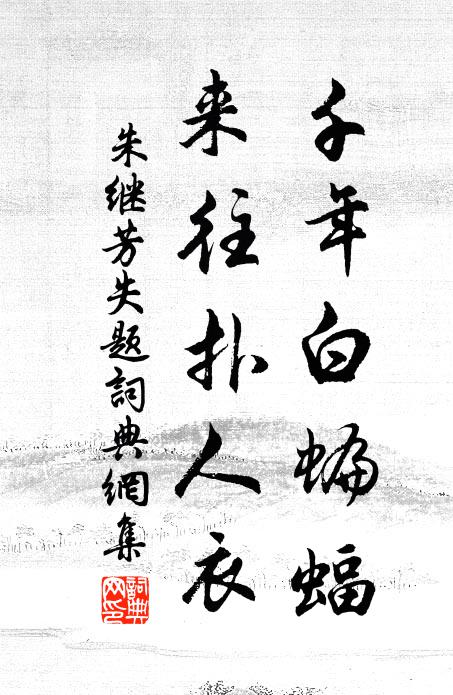 千年白蝙蝠
来往扑人衣
朱继芳失题詞典網集
詞典網印